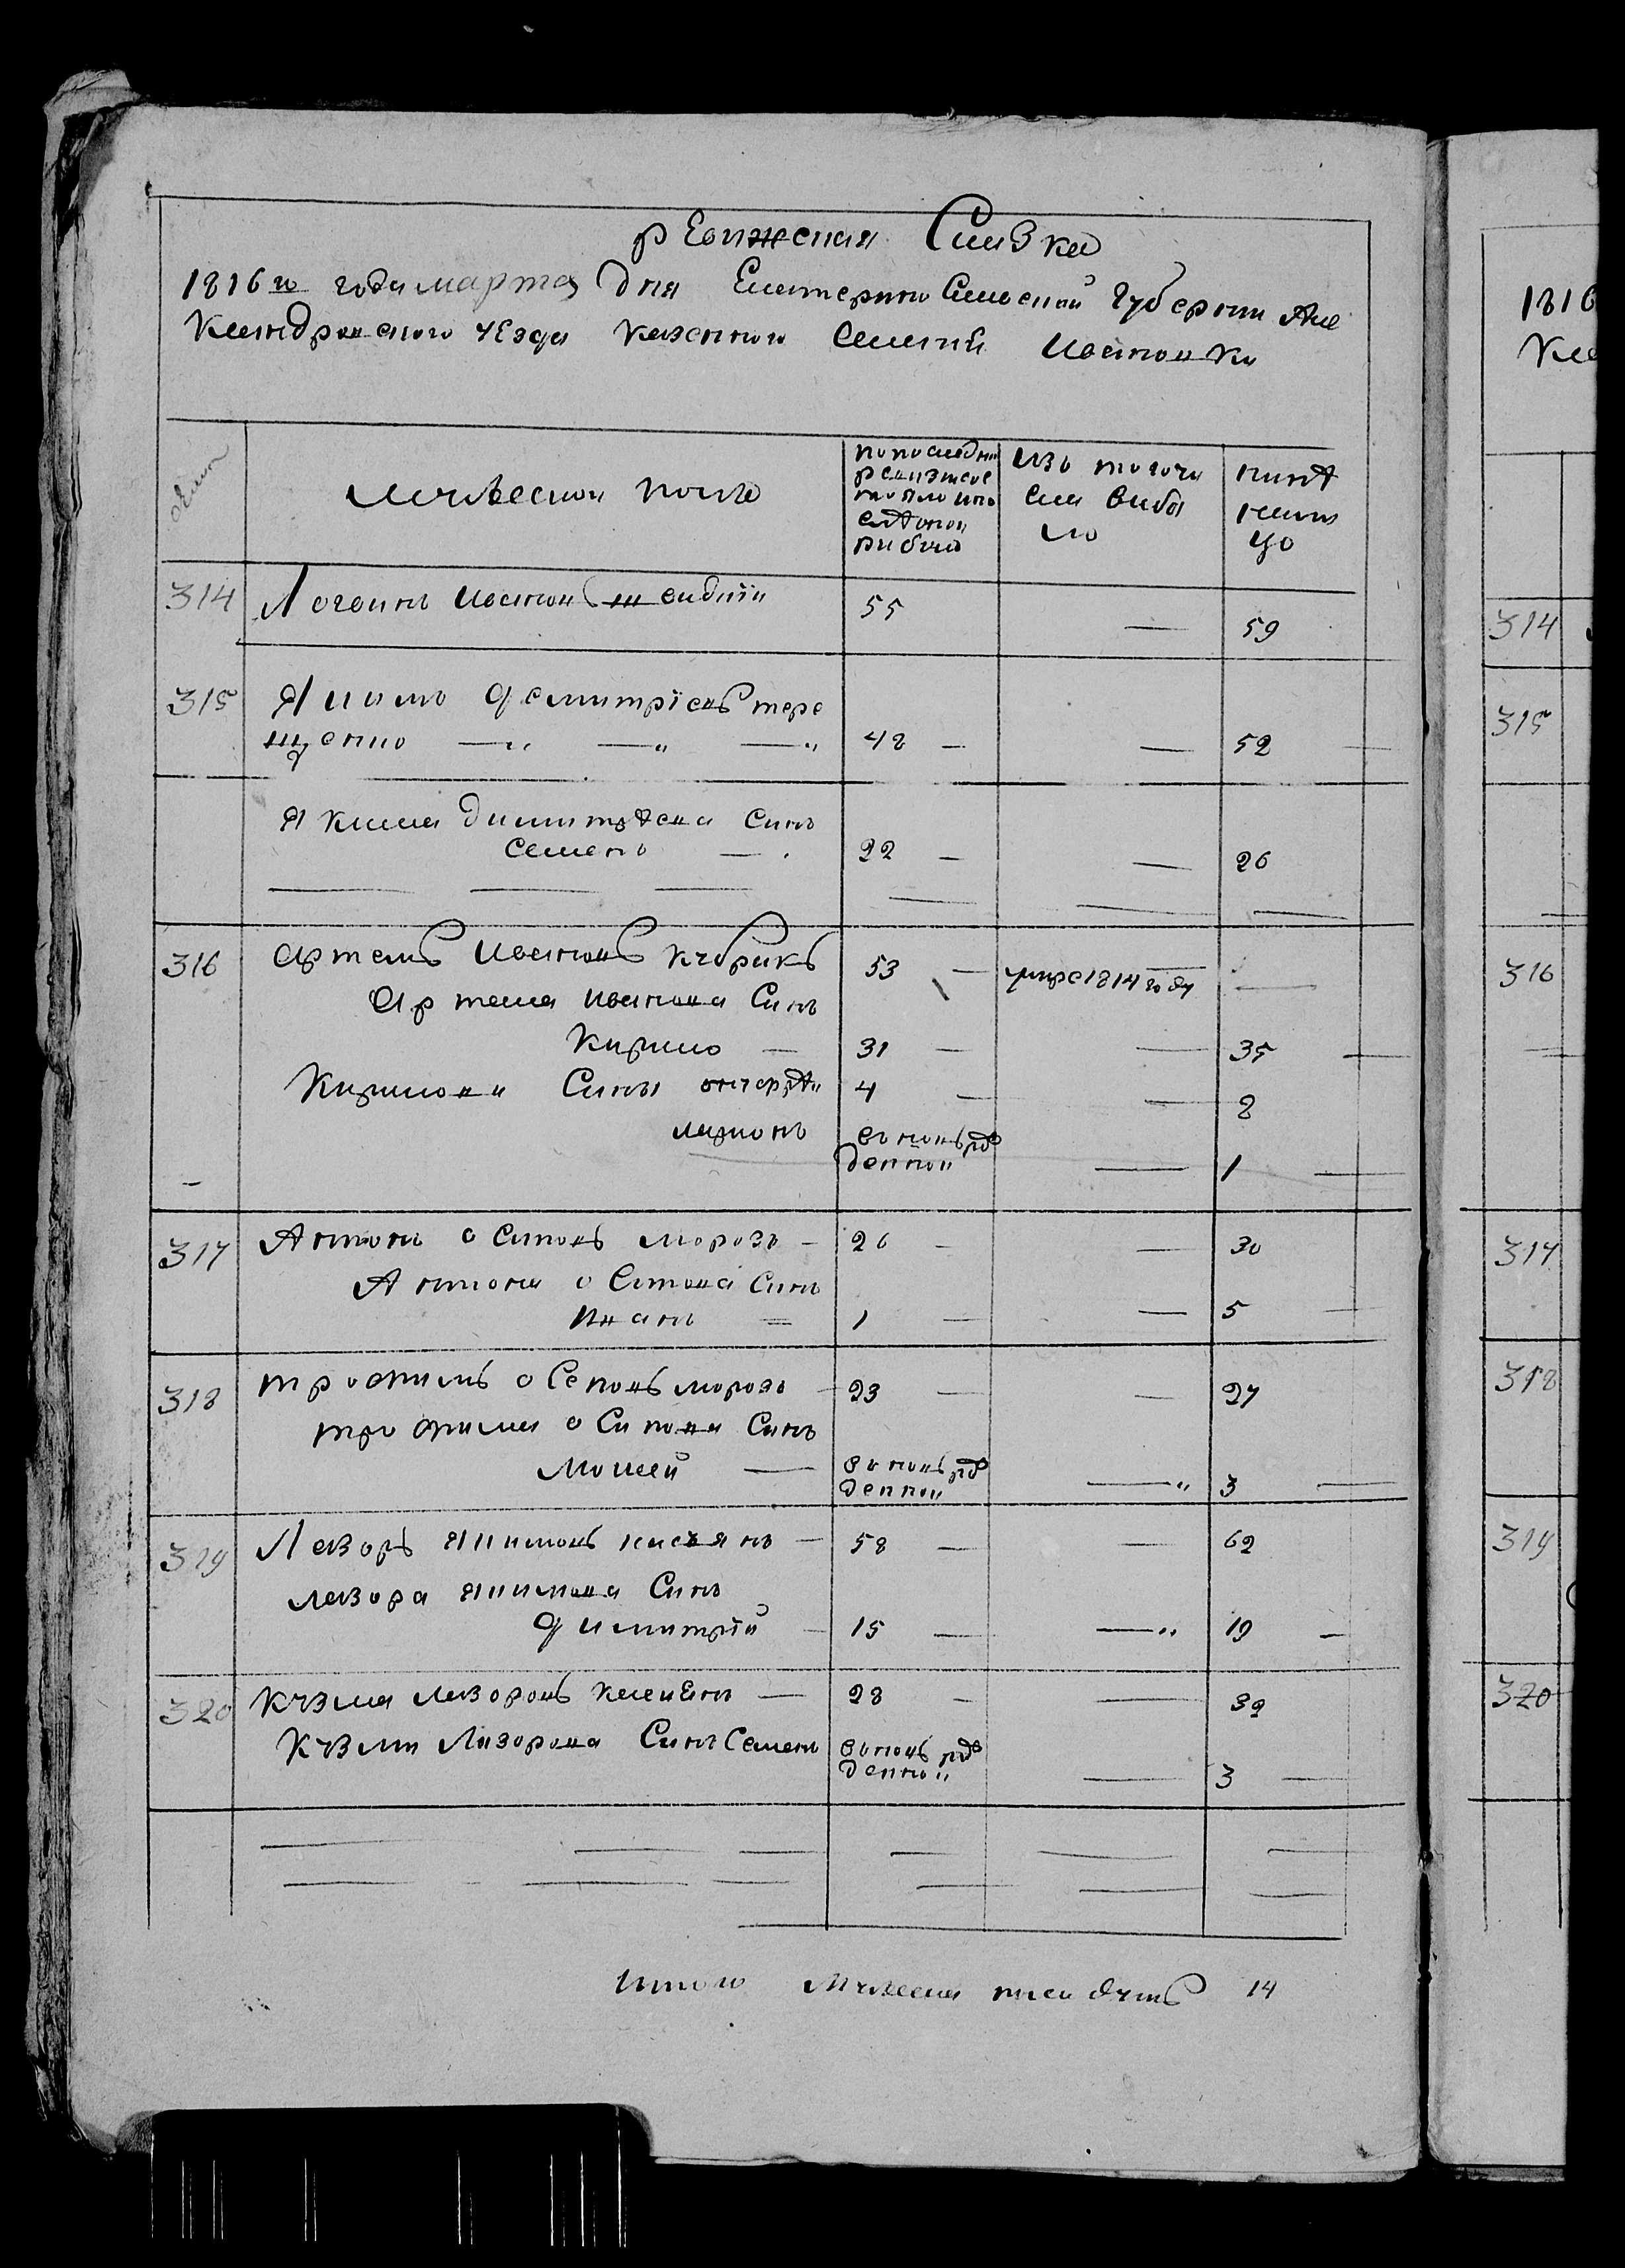 ревижская Сказка
1816го года марта дня Екатеринославской губернии Але
ксандровского уезда казенной Слободы Ивановки
мужеской полъ
попоследней ревизже состояло ипо слетого прибыло
Изъ тогочи сла выбы ло
ныне налицо
314 Логвинъ Ивановъ швидкїй 55 — 59
315 Якимъ Демитріевъ тере
щенко — — — 48 — — 52 —
Якима Димитрїева Синъ
Семенъ — 22 — — 26
316 Артемъ Ивановъ кубрикъ 53 — умре 1814 году —
Артема Иванова Синъ
Кирило — 31 — — 35 —
Кирилови Сины 4 — — 8
Мironъ въновърождённой — 1 —
317 Антонъ Осиповъ морозъ — 26 — — 30
Антона Осипова Синъ
Иванъ — 1 — — 5 —
318 трофимъ Осеповъ морозъ — 23 — — 27
трофима Осипова Синъ
Мосей — въновърождённой — 3 —
319 Лазоръ Якимовъ касьянъ — 58 — — 62
лазора Якимова Синъ
Димитрїй — 15 — — 19 —
320 Кузма лазоровъ касьянъ — 28 — — 32
Кузми Лазорова Синъ Семенъ въновърождённой — 3 —
Итого Мужеска пола душъ 14
1816
314
315
316
317
318
319
320